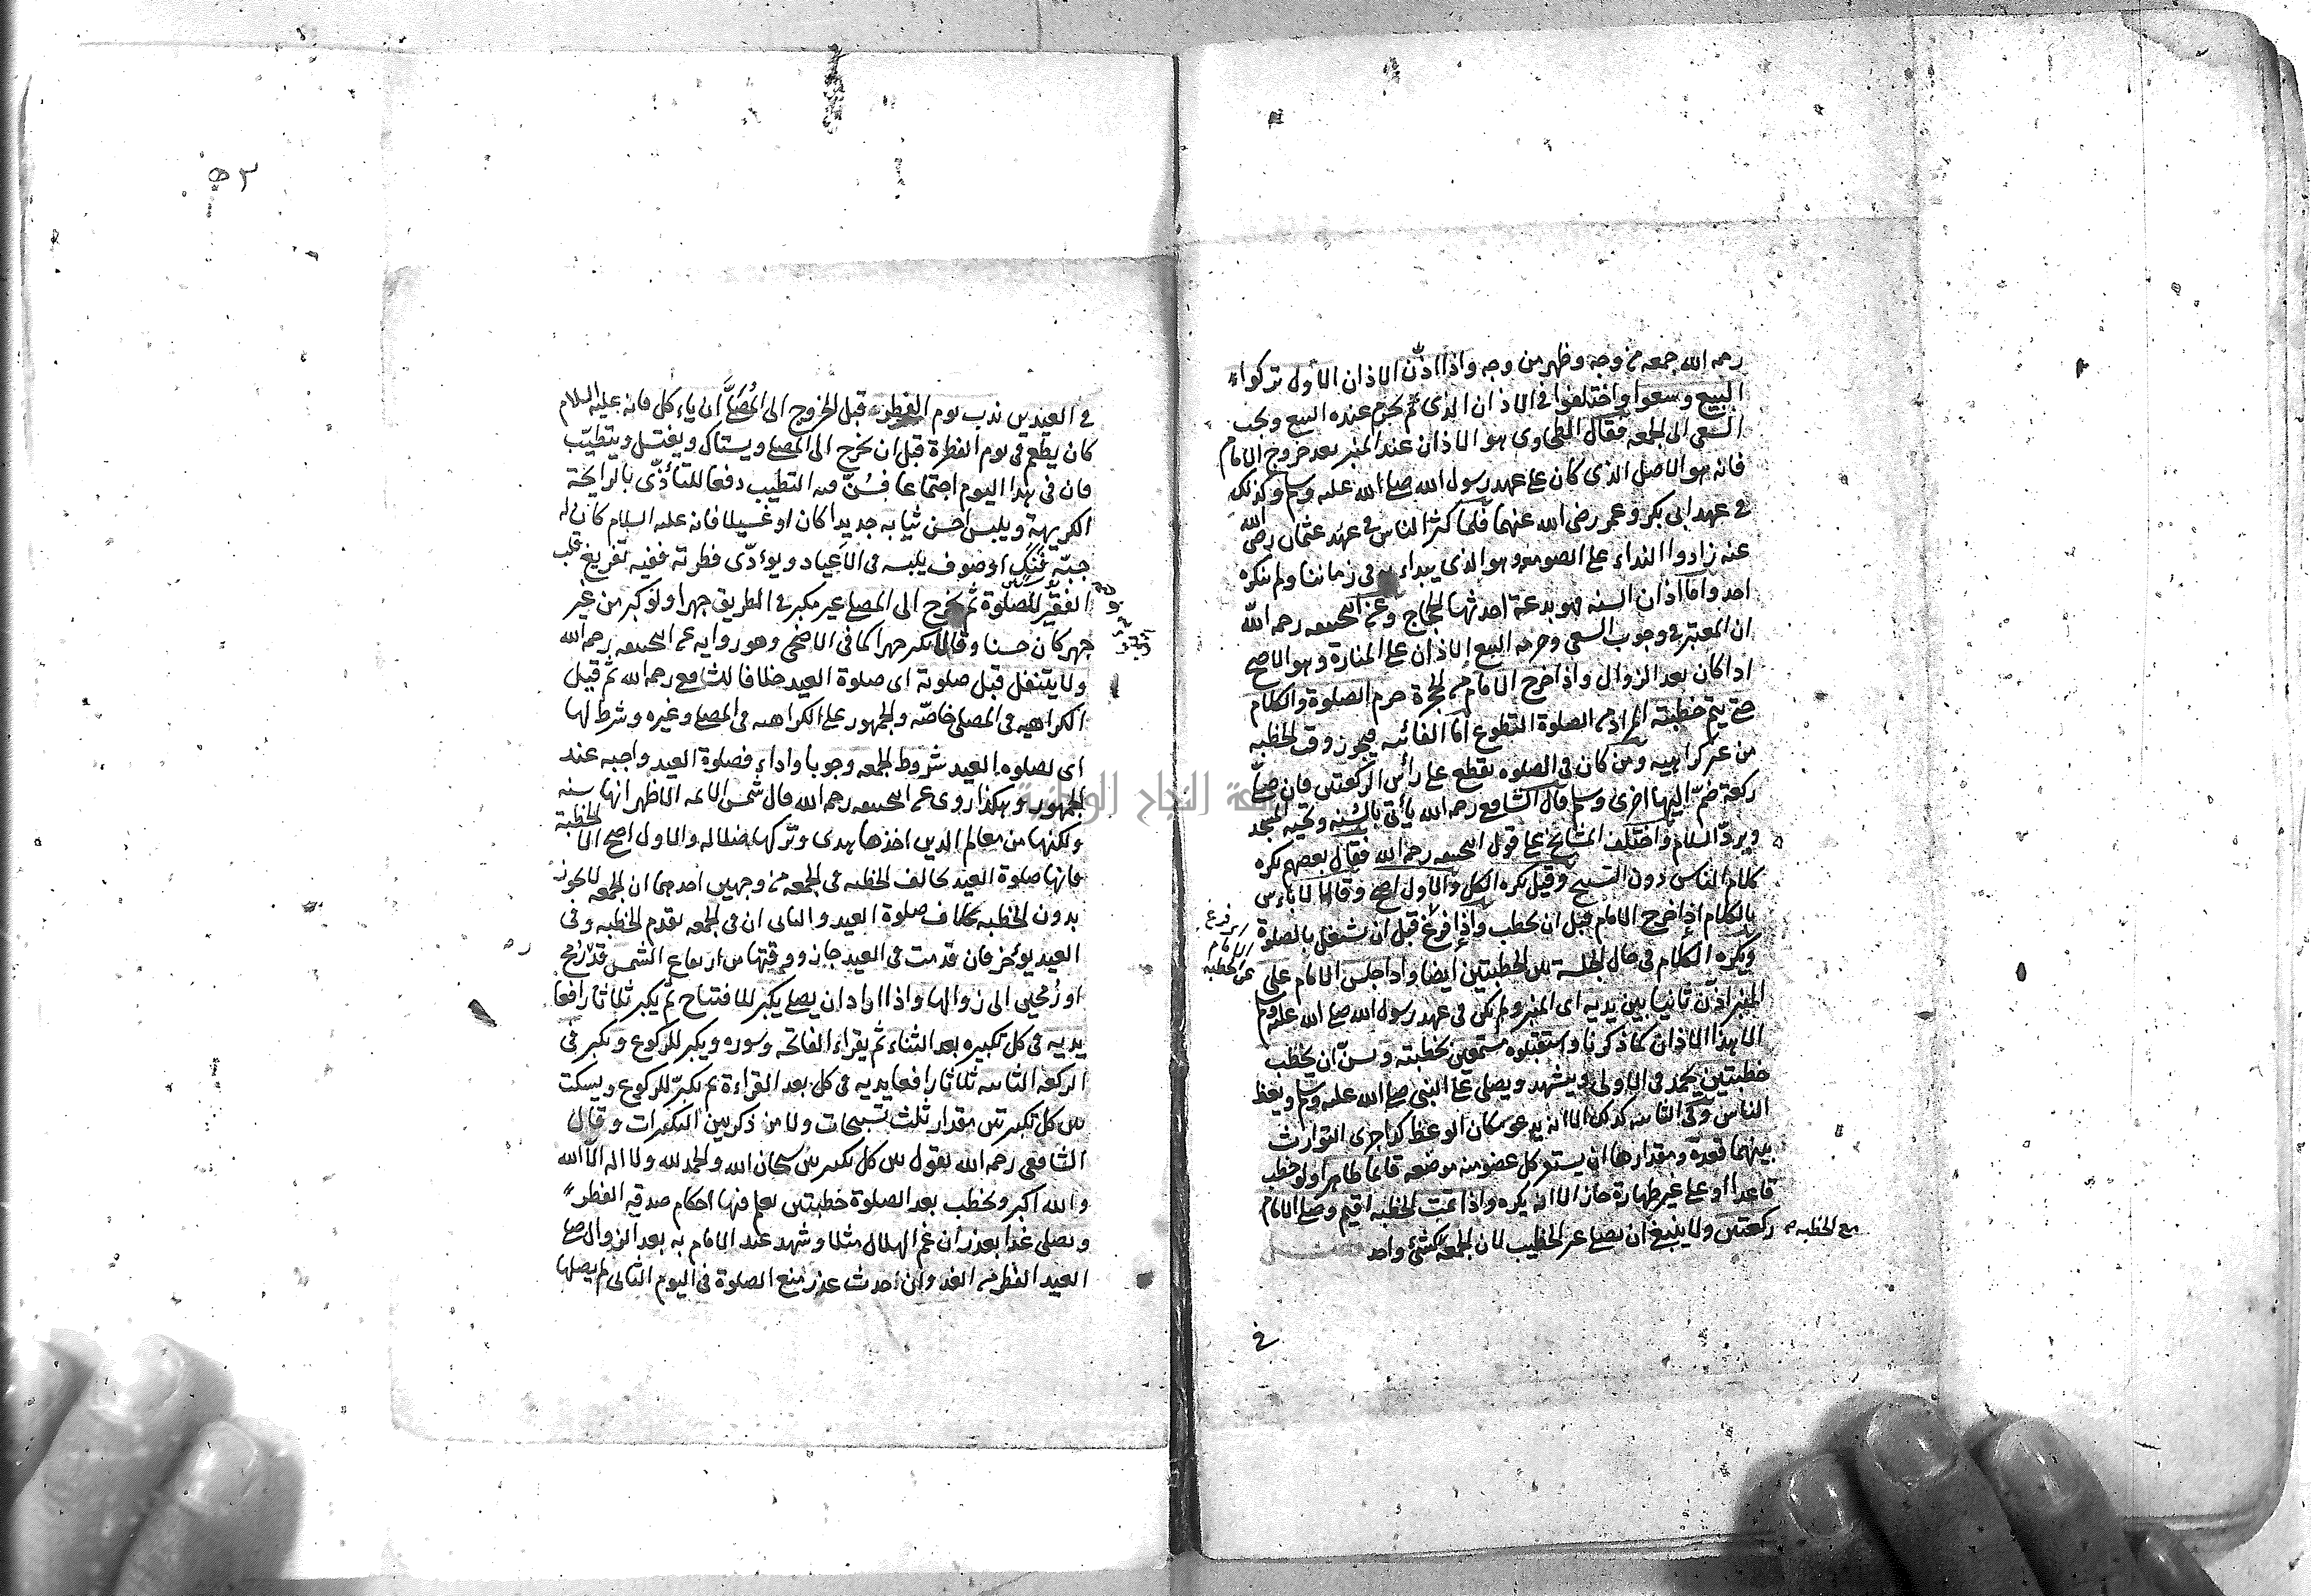 رحمه الله جمعه من وجه وظهر من وجه واذا اذّن الاذان الاول تركوا
البيع وسعوا واختلفوا في الاذان الذى يحرم عنده البيع ويجب
السعى الى الجمعه فقال الطحاوى هو الاذان عند المنبر بعد خروج الامام
فانه هو الاصل الذى كان على عهد رسول الله صلى الله عليه وسلم وكذلك
في عهد ابى بكر وعمر رضى الله عنهما فلما كثر الناس في عهد عثمان رضى الله
عنه زادوا النداء على الصومعه وهو الذى يبداء به في زماننا ولم ينكره
احد واما اذان السنه فهو بدعة احدثها الحجاج وعن ابى حنيفه رحمه الله
ان المعتبر في وجوب السعى وحرمه البيع الاذان على المنارة وهو الاصح
اذا كان بعد الزوال واذا خرج الامام من الحجرة حرم الصلوة والكلام
حتى يتم خطبته المراد من الصلوة التطوع اما الفائته فيجوز وقت الخطبه
من غير كراهيه ومن كان في الصلوه يقطع على رأس الركعتين فان صلّى
ركعة ضمّ اليها اخرى وسلم قال الشافعى رحمه الله يأتى بالسُنه وتحيه المسجد
ويردّ السلام واختلف المشائخ على قول ابى حنيفه رحمه الله فقال بعضهم يكره
كلام الناس دون التسبيح وقيل يكره الكل والاول اصح وقالا لا بأس
بالكلام اذا خرج الامام قبل ان يخطب واذا فرغ قبل ان يشتغل بالصلوة
ويكره الكلام في حال الجلسة بين الخطبتين ايضا واذا جلس الامام على
المنبر اذّن ثانيا بين يديه اى المنبر ولم يكن في عهد رسول الله صلى الله عليه وسلم
الا هذا الاذان كما ذكرنا واستقبلوه مستمعين بخطبته وسنّ ان يخطب
خطبتين يحمد في الاولى ويتشهد ويصلى على النبى صلى الله عليه وسلم ويعظ
الناس وفي الثانيه كذلك الا انه يدعو مكان الوعظ كذا جرى التوارث
بينهما قعدة ومقدارها ان يستقر كل عضو منه موضعه قائما طاهرا ولو خطب
قاعدا او على غير طهارة جاز الا انه يكره واذا تمت الخطبه اقيم وصلى الامام
ركعتين ولا ينبغى ان يصلى غير الخطيب لان الجمعه كشئ واحد
مع الخطبه
في
٥٣
في العيدين ندب يوم الفطر قبل الخروج الى المُصَلَّى ان يأكل فانه عليه السلام
كان يطعم في يوم الفطرة قبل ان يخرج الى المصلى ويستاك ويغتسل ويتطيّب
فان في هذا اليوم اجتماعا فسُنّ فيه التطيب دفعا للتأذّى بالرايحة
الكريهة ويلبس احسن ثيابه جديدا كان او غسيلا فانه عليه السلام كان له
جبّة فنك او صوف يلبسه في الاعياد ويؤدّى فطرته ففيه تفريغ قلب
الفقير للصلوة ثم يخرج الى المصلى غير مكبر في الطريق جهرا ولو كبر من غير
جهر كان حسنا وقالا يكبر جهرا كما في الاضحى وهو روايه عن ابى حنيفه رحمه الله
ولا يتنفل قبل صلوته اى صلوة العيد خلافا للشافعى رحمه الله ثم قيل
الكراهيه في المصلى خاصّه والجمهور على الكراهيه في المصلى وغيره وشرط لها
اى لصلوه العيد شروط الجمعه وجوبا واداء فصلوة العيد واجبه عند
الجمهور وهكذا روى عن ابى حنيفه رحمه الله قال شمس الائمه الاظهر انها سنه
ولكنها من معالم الدين اخذها هدى وتركها ضلاله والاول اصح الا الخطبة
فانها صلوة العيد يخالف الخطبه في الجمعه من وجهين احدهما ان الجمعه لا يجوز
بدون الخطبه بخلاف صلوة العيد والثانى ان في الجمعه يقدم الخطبه وفى
العيد يؤخر فان قدمت في العيد جاز ووقتها من ارتفاع الشمس قدر رُمح
او رُمحين الى زوالها واذا اراد ان يصلى يكبر للافتتاح ثم يكبر ثلاثا رافعا
يديه في كل تكبيره بعد الثناء ثم يقراء الفاتحه وسوره ويكبر للركوع ويكبر في
الركعه الثانيه ثلاثا رافعا يديه في كل بعد القراءة ثم يكبّر للركوع ويسكت
بين كل تكبيرتين مقدار ثلث تسبيحات ولا من ذكر بين التكبيرات وقال
الشافعى رحمه الله يقول بين كل تكبيرتين سبحان الله والحمد لله ولا اله الا الله
والله اكبر ويخطب بعد الصلوة خطبتين يعلم فيها احكام صدقه الفطر
ويصلى غدا بعذر ان غم الهلال مثلا وشهد عند الامام به بعد الزوال صلى
العيد الفطر من الغد وان احدث عذر منع الصلوة في اليوم الثانى لم يصلها